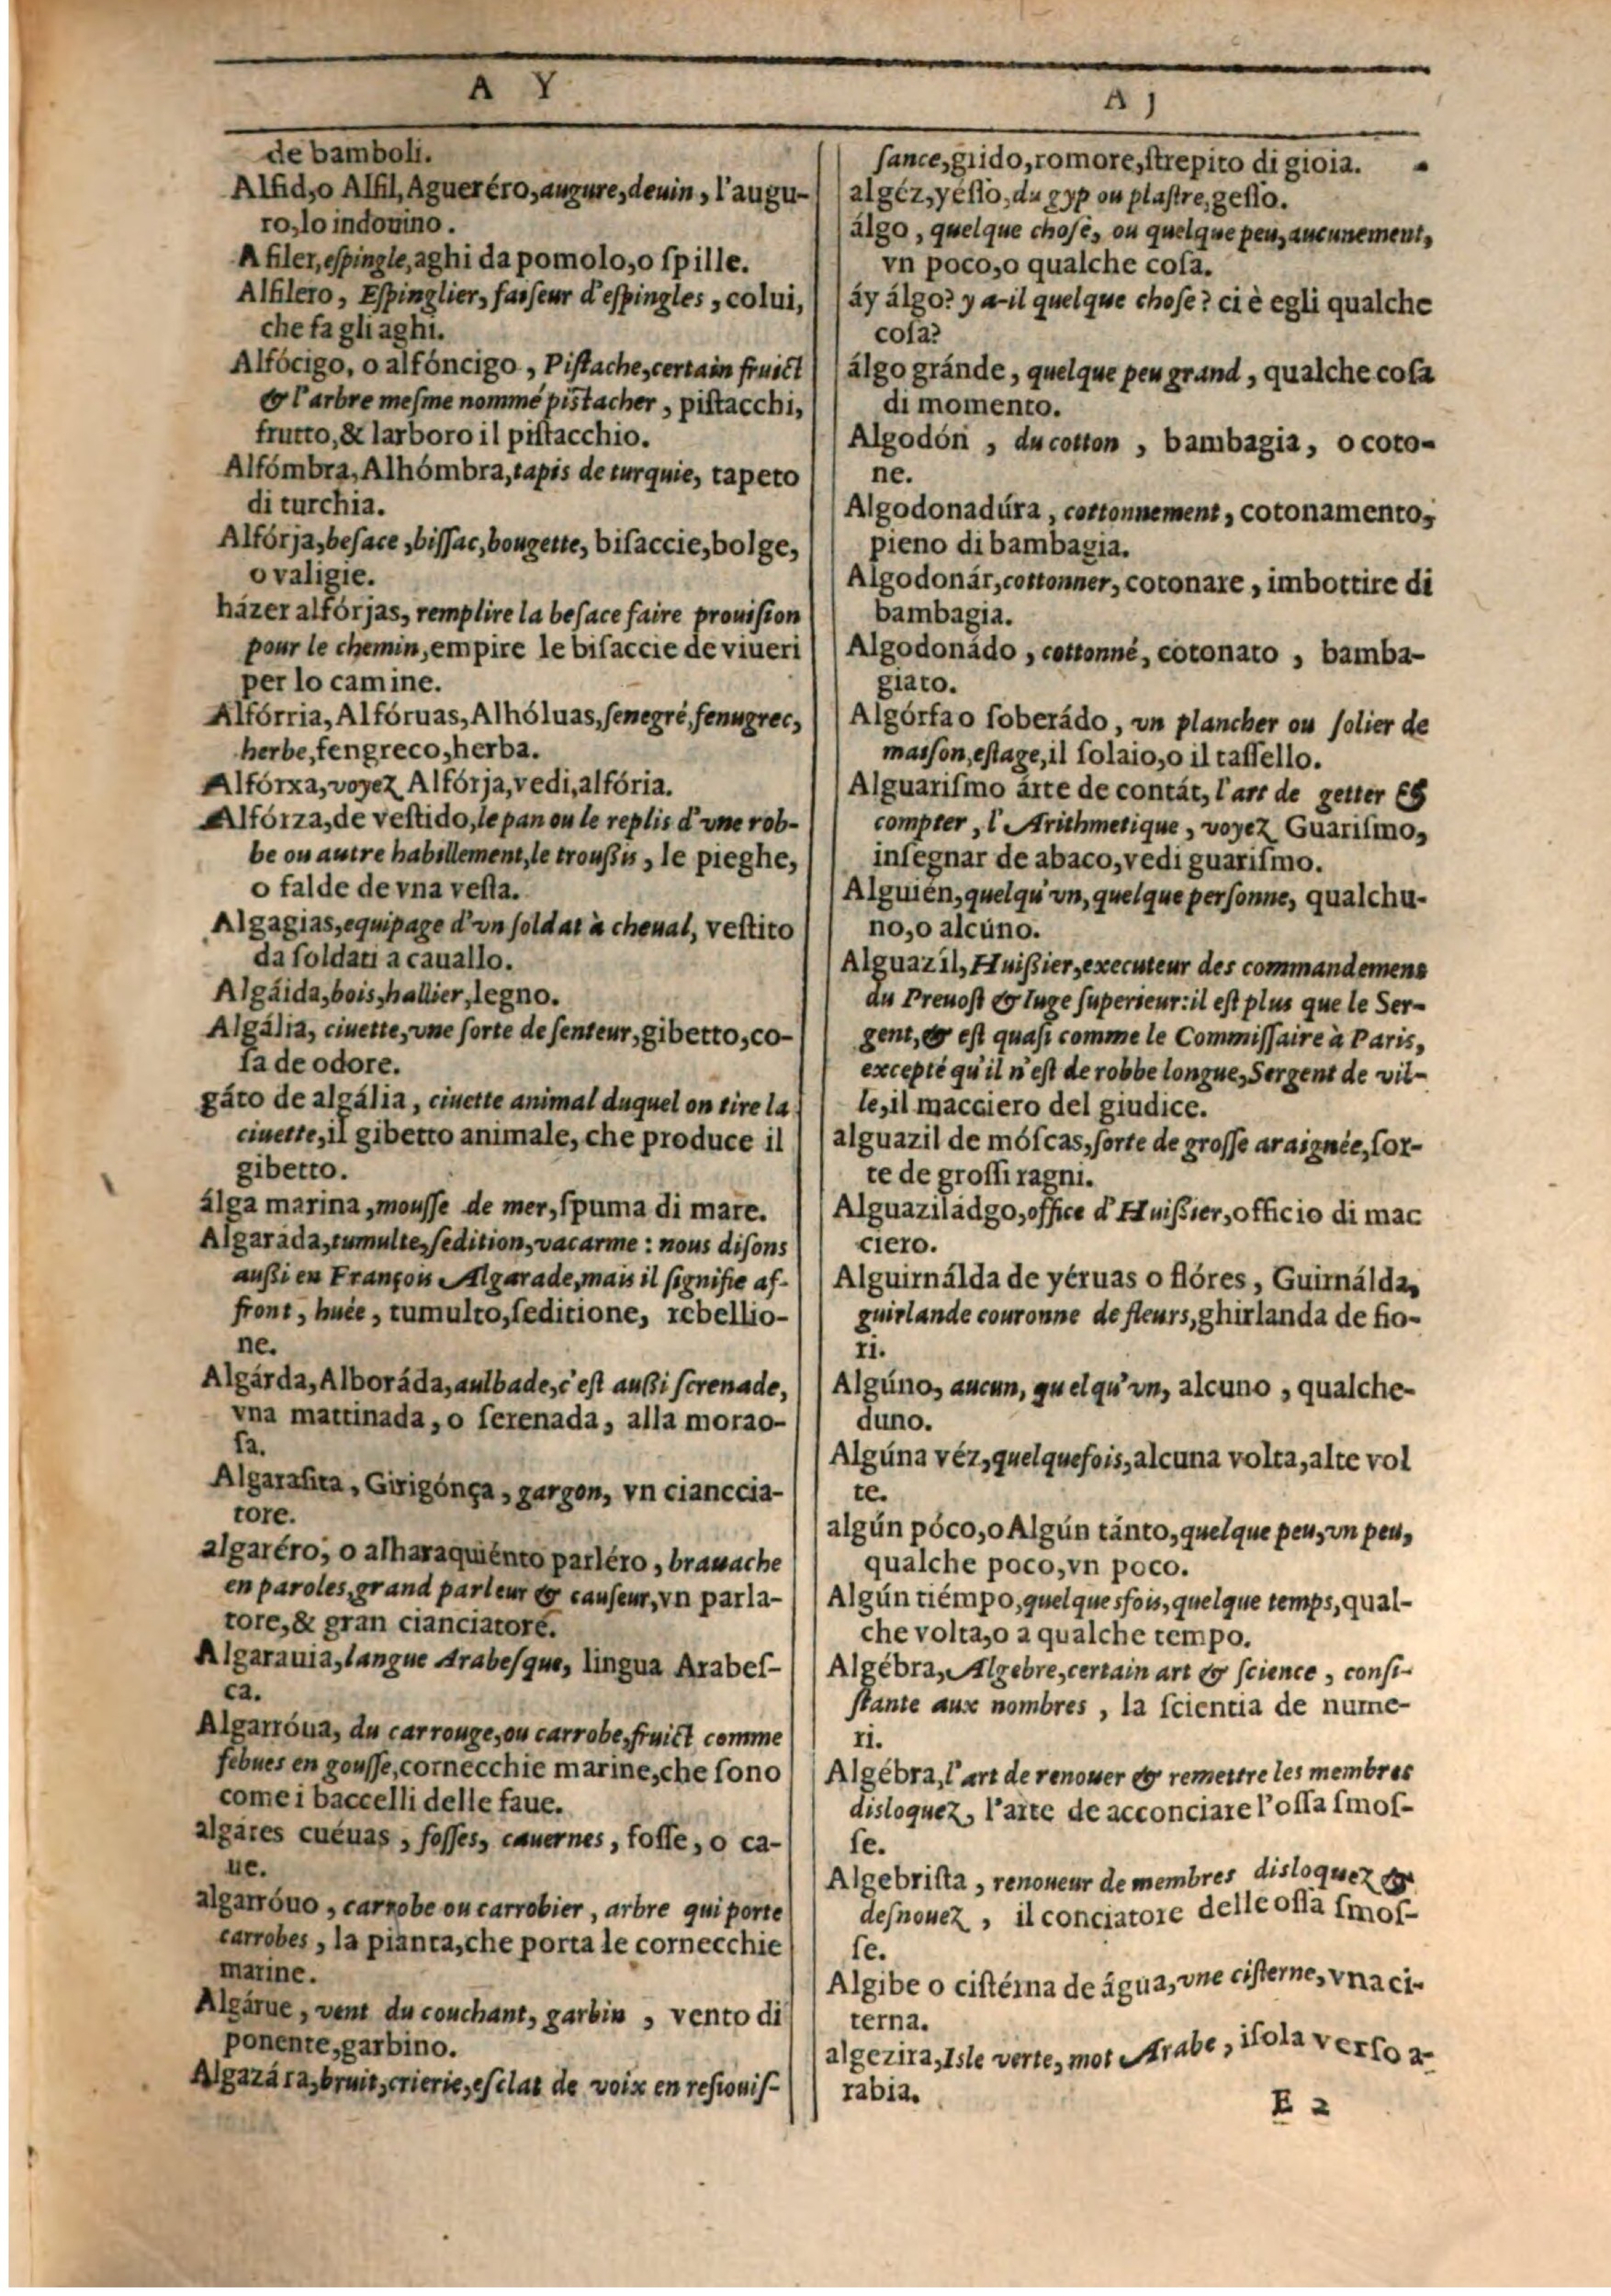 A Y
A J
de bamboli.
Alfid,o Alfil, Agueréro,augure,deuin, l'augu-
ro,lo indouino.
A filer,eſpingle,aghi da pomolo,o ſpille.
Alfilero, Eſpinglier, faiſeur d'eſpingles, colui,
che fa gli aghi.
Alfócigo, o alfóncigo, Piſtache,certain fruict
& l'arbre meſme nommé piſtacher, piſtacchi,
frutto,& larboro il piſtacchio.
Alfómbra, Alhómbra,tapis de turquie, tapeto
di turchia.
Alfórja,beſace,biſſac,bougette, biſaccie,bolge,
o valigie.
házer alfórjas, remplire la beſace faire prouiſion
pour le chemin,empire le biſaccie de viueri
per lo camine.
Alfórria, Alfóruas, Alhóluas,ſenegré,fenugrec,
herbe,fengreco,herba.
Alfórxa,voyez Alfórja,vedi,alfória.
Alfórza,de veſtido,le pan ou le replis d'vne rob-
be ou autre habillement,le trouſſis, le pieghe,
o falde de vna veſta.
Algagias,equipage d'vn ſoldat à cheual, veſtito
da ſoldati a cauallo.
Algáida,bois,hallier,legno.
Algália, ciuette,vne ſorte de ſenteur,gibetto,co-
ſa de odore.
gáto de algália, ciuette animal duquel on tire la
ciuette,il gibetto animale, che produce il
gibetto.
álga marina,mouſſe de mer,ſpuma di mare.
Algaráda,tumulte,ſedition,vacarme: nous diſons
auſſi en François Algarade,mais il ſignifie af-
front, huée, tumulto,ſeditione, rebellio-
ne.
Algárda, Alboráda,aulbade,c'eſt auſſi ſerenade,
vna mattinada, o ſerenada, alla morao-
ſa.
Algaraſita, Girigónça, gargon, vn cianccia-
tore.
algaréro, o alharaquiénto parléro, brauache
en paroles,grand parleur & cauſeur,vn parla-
tore,& gran cianciatore.
Algarauia,langue Arabeſque, lingua Arabeſ-
ca.
Algarróua, du carrouge,ou carrobe,fruict comme
febues en gouſſe,cornecchie marine,che ſono
come i baccelli delle faue.
algáres cuéuas, foſſes, cauernes, foſſe, o ca-
ue.
algarróuo, carrobe ou carrobier, arbre qui porte
carrobes, la pianta,che porta le cornecchie
marine.
Algárue, vent du couchant, garbin, vento di
ponente,garbino.
Algazára,bruit,crierie,eſclat de voix en reſiouiſ-
ſance,grido,romore,ſtrepito di gioia.
algéz,yéſſo,du gyp ou plaſtre,geſſo.
álgo, quelque choſe, ou quelque peu,aucunement,
vn poco,o qualche coſa.
áy álgo? y a-il quelque choſe? ci è egli qualche
coſa?
álgo gránde, quelque peu grand, qualche coſa
di momento.
Algodón, du cotton, bambagia, o coto-
ne.
Algodonadúra, cottonnement, cotonamento,
pieno di bambagia.
Algodonár,cottonner, cotonare, imbottire di
bambagia.
Algodonádo, cottonné, cotonato, bamba-
giato.
Algórfa o ſoberádo, vn plancher ou ſolier de
maiſon,eſtage,il ſolaio,o il taſſello.
Alguariſmo árte de contár, l'art de getter &
compter, l'Arithmetique, voyez Guariſmo,
inſegnar de abaco,vedi guariſmo.
Alguién,quelqu'vn,quelque perſonne, qualchu-
no,o alcúno.
Alguazíl, Huiſſier,executeur des commandemens
du Preuoſt & Iuge ſuperieur:il eſt plus que le Ser-
gent,& eſt quaſi comme le Commiſſaire à Paris,
excepté qu'il n'eſt de robbe longue,Sergent de vil-
le,il macciero del giudice.
alguazil de móſcas,ſorte de groſſe araignée,ſor-
te de groſſi ragni.
Alguaziládgo,office d'Huiſſier,officio di mac
ciero.
Alguirnálda de yéruas o flóres, Guirnálda,
guirlande couronne de fleurs,ghirlanda de fio-
ri.
Algúno, aucun, quelqu'vn, alcuno, qualche-
duno.
Algúna véz,quelquefois,alcuna volta,alte vol
te.
algún póco,o Algún tánto,quelque peu,vn peu,
qualche poco,vn poco.
Algún tiémpo,quelquesfois,quelque temps,qual-
che volta,o a qualche tempo.
Algébra, Algebre,certain art & ſcience, conſi-
ſtante aux nombres, la ſcientia de nume-
ri.
Algébra,l'art de renouer & remettre les membres
disloquez, l'arte de acconciare l'oſſa ſmoſ-
ſe.
Algebriſta, renoueur de membres disloquez &
deſnouez, il conciatore delle oſſa ſmoſ-
ſe.
Algibe o ciſtérna de água,vne ciſterne,vna ci-
terna.
algezira,Isle verte, mot Arabe, iſola verſo a-
rabia.
E 2